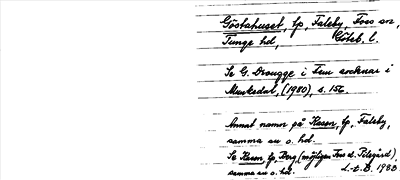 Göstahuset, lp, Faleby, Foss sn,
Tunge hd, Göteb. l.
Se G. Drougge i Fem socknar i
Munkedal, (1980), s. 156.
Annat namn på Hasen, lp, Faleby,
samma sn o. hd.
Se Hasen, lp, Berg (möjligen Foss el. Pilegård),
samma sn o. hd. L-t.B. 1983